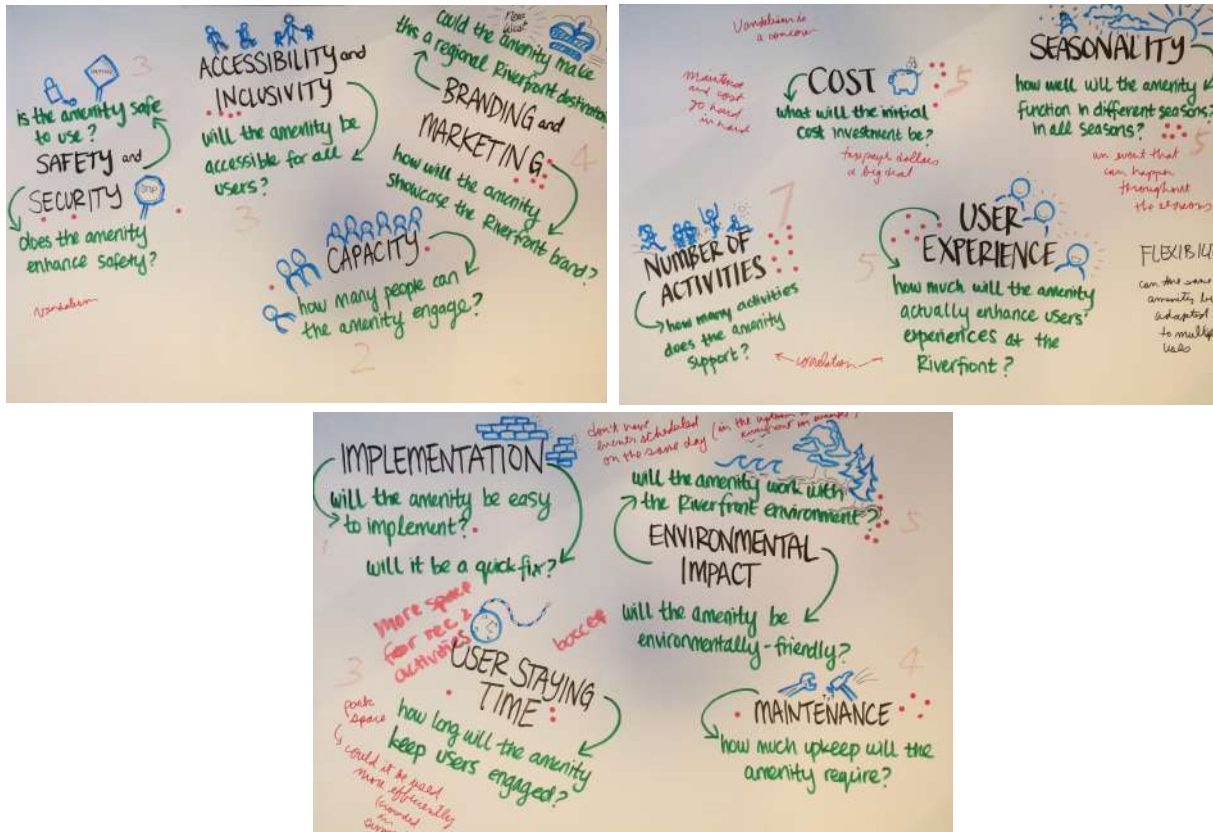 3
is the amenity safe
to use?
SAFETY and
SECURITY
STOP
does the amenity
enhance safety?
Vandalism
ACCESSIBILITY and
INCLUSIVITY
will the amenity be
accessible for all
users?
3
could the amenity make
this a regional Riverfront destination?
BRANDING and
MARKETING
4
how will the amenity
showcase the Riverfront brand?
CAPACITY
how many people can
the amenity engage?
2
Vandalism is
a concern
maintenance
and cost
go hand
in hand
COST
5
what will the initial
cost investment be?
taxpayer dollars
a big deal
SEASONALITY
how well will the amenity
function in different seasons?
in all seasons?
5
an event that
can happen
throughout
the seasons
7
NUMBER OF
ACTIVITIES
how many activities
does the amenity
support?
correlation
5
USER
EXPERIENCE
how much will the amenity
actually enhance users'
experiences at the
Riverfront?
FLEXIBILI
can the same
amenity be
adapted
to multiple
uses
IMPLEMENTATION
will the amenity be easy
to implement?
will it be a quick fix?
1
don't have
events scheduled
on the same day (in the
will the amenity work with
the Riverfront environment?
5
ENVIRONMENTAL
IMPACT
will the amenity be
environmentally-friendly?
More space
for rec
activities
bocce
3
USER STAYING
TIME
how long will the amenity
keep users engaged?
park
space
could it be used
more efficiently
4
MAINTENANCE
how much upkeep will the
amenity require?